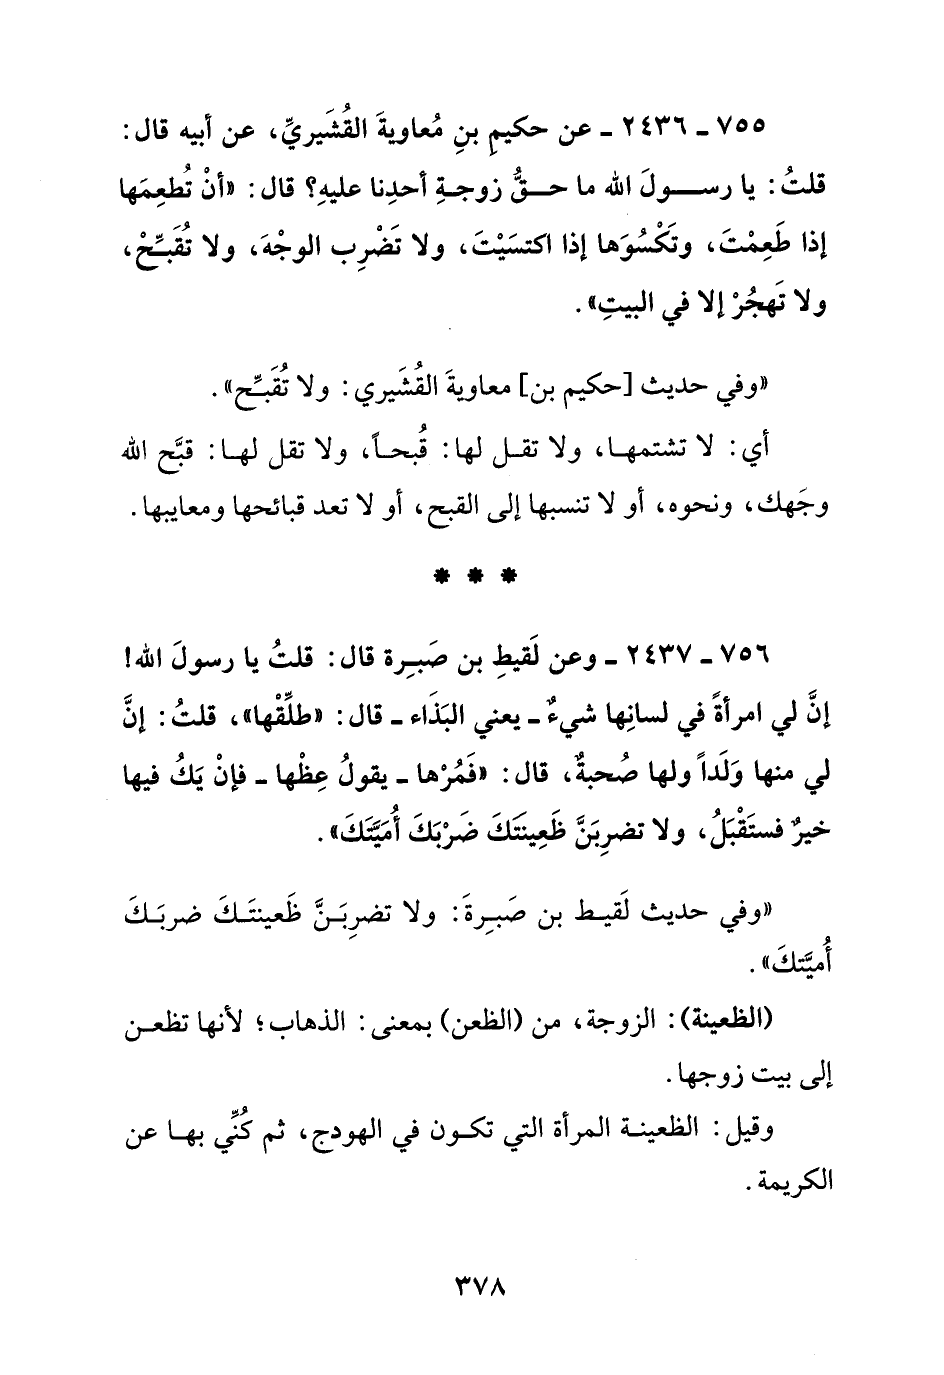 ٧٥٥ ـ ٢٤٣٦ ـ عن حكيمِ بنِ مُعاويةَ القُشَيريِّ، عن أبيه قال:
قلتُ: يا رســولَ الله ما حــقُّ زوجةِ أحدِنا عليهِ؟ قال: «أنْ تُطعِمَها
إذا طَعِمْتَ، وتَكْسُوَها إذا اكتسَيْتَ، ولا تَضْرِب الوجْهَ، ولا تُقَبِّحْ،
ولا تَهجُرْ إلا في البيتِ».
«وفي حديث [حكيم بن] معاويةَ القُشَيري: ولا تُقَبِّح».
أي: لا تشتمهـا، ولا تقـل لها: قُبحـاً، ولا تقل لهـا: قبَّح الله
وجَهك، ونحوه، أو لا تنسبها إلى القبح، أو لا تعد قبائحها ومعايبها.
* * *
٧٥٦ ـ ٢٤٣٧ ـ وعن لَقيطِ بن صَبِرة قال: قلتُ يا رسولَ الله!
إنَّ لي امرأةً في لسانِها شيءٌ ـ يعني البَذَاء ـ قال: «طلِّقْها»، قلتُ: إنَّ
لي منها وَلَداً ولها صُحبةٌ، قال: «فَمُرْها ـ يقولُ عِظْها ـ فإنْ يَكُ فيها
خيرٌ فستَقْبَلُ، ولا تضرِبَنَّ ظَعِينتَكَ ضَرْبَكَ أُمَيَّتَكَ».
«وفي حديث لَقيـط بن صَبِرةَ: ولا تضرِبَـنَّ ظَعينتَـكَ ضربَـكَ
أُميَّتكَ».
(الظعينة): الزوجة، من (الظعن) بمعنى: الذهاب؛ لأنها تظعـن
إلى بيت زوجها.
وقيل: الظعينـة المرأة التي تكـون في الهودج، ثم كُنِّي بهـا عن
الكريمة.
٣٧٨